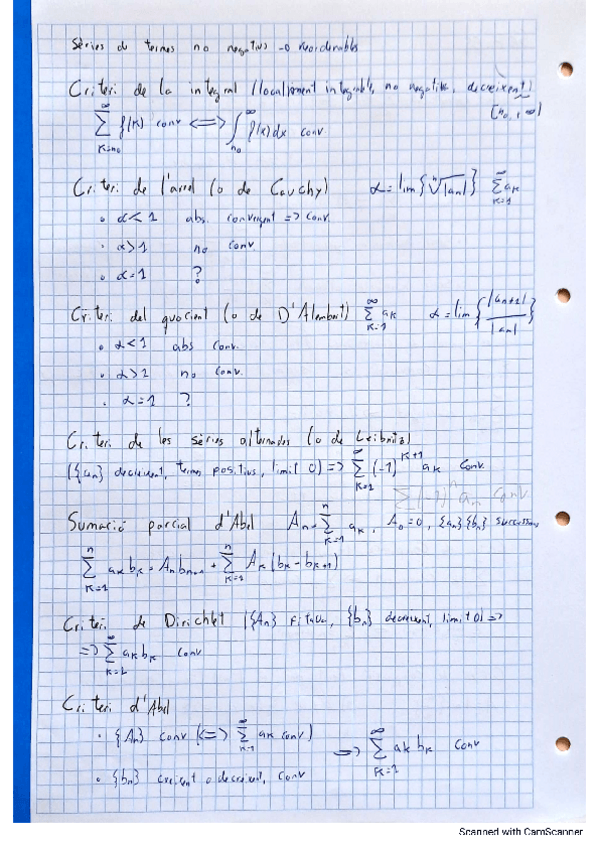 Sèries de termes no negatius → reordenables
Criteri de la integral (localment integrable, no negativa, decreixent)
[n₀, ∞)
∑_{k=n₀}^{∞} f(k) conv <=> ∫_{n₀}^{∞} f(x)dx conv
Criteri de l'arrel (o de Cauchy) α = lim{ⁿ√|an|} ∑_{k=1}^{∞} ak
• α<1 abs. convergent => conv
• α>1 no conv.
• α=1 ?
Criteri del quocient (o de D'Alembert) ∑_{k=1}^{∞} ak α = lim{|an+1|/|an|}
• α<1 abs conv.
• α>1 no conv.
• α=1 ?
Criteri de les sèries alternades (o de Leibnitz)
({an} decreixent, termes positius, limit 0) => ∑_{k=1}^{∞} (-1)^{k+1} ak conv.
∑(-1)^n an conv.
Sumació parcial d'Abel An = ∑_{k=1}^{n} ak, A₀=0, {an}{bn} successions
∑_{k=1}^{n} ak bk = An bn+1 + ∑_{k=1}^{n} Ak (bk - bk+1)
Criteri de Dirichlet ({An} fitada, {bn} decreixent, limit 0) =>
=> ∑_{k=1}^{∞} ak bk conv
Criteri d'Abel
• {An} conv (<=> ∑_{k=1}^{∞} ak conv)
=> ∑_{k=1}^{∞} ak bk conv
• {bn} creixent o decreixent, conv
Scanned with CamScanner